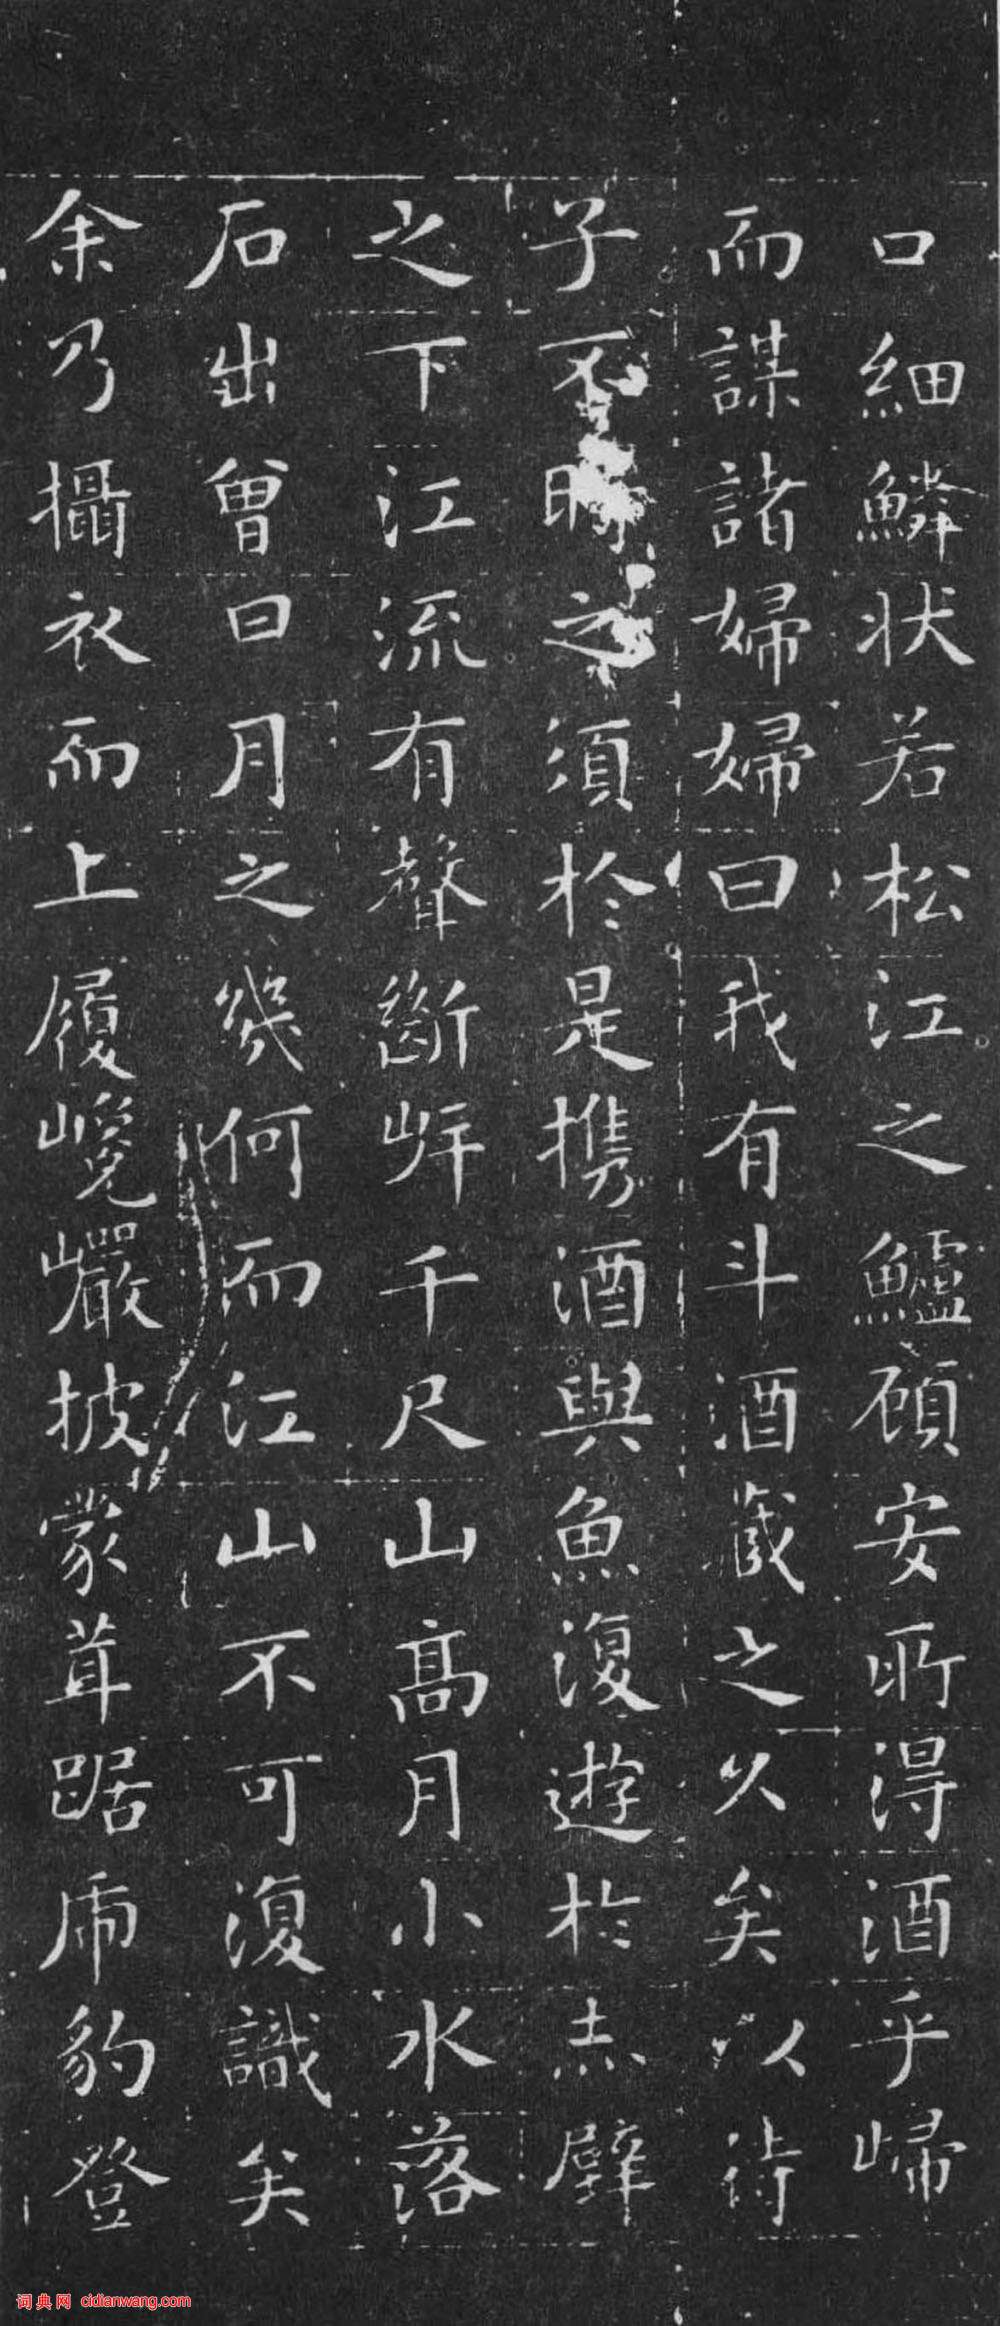 口細鱗狀若松江之鱸顧安所得酒乎歸
而謀諸婦婦曰我有斗酒藏之久矣以待
子不時之須於是攜酒與魚復遊於赤壁
之下江流有聲斷岸千尺山高月小水落
石出曾日月之幾何而江山不可復識矣
余乃攝衣而上履巉巖披蒙茸踞虎豹登
词典网 cidianwang.com